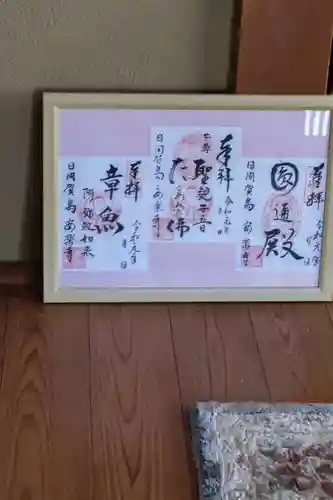 奉拝
令和元年
月
日
圓通殿
日間賀島 安楽寺
奉拝
令和元年
月
日
本尊
日間賀島 安楽寺
奉拝
令和元年
月
日
章魚
阿弥陀如来
日間賀島 安楽寺